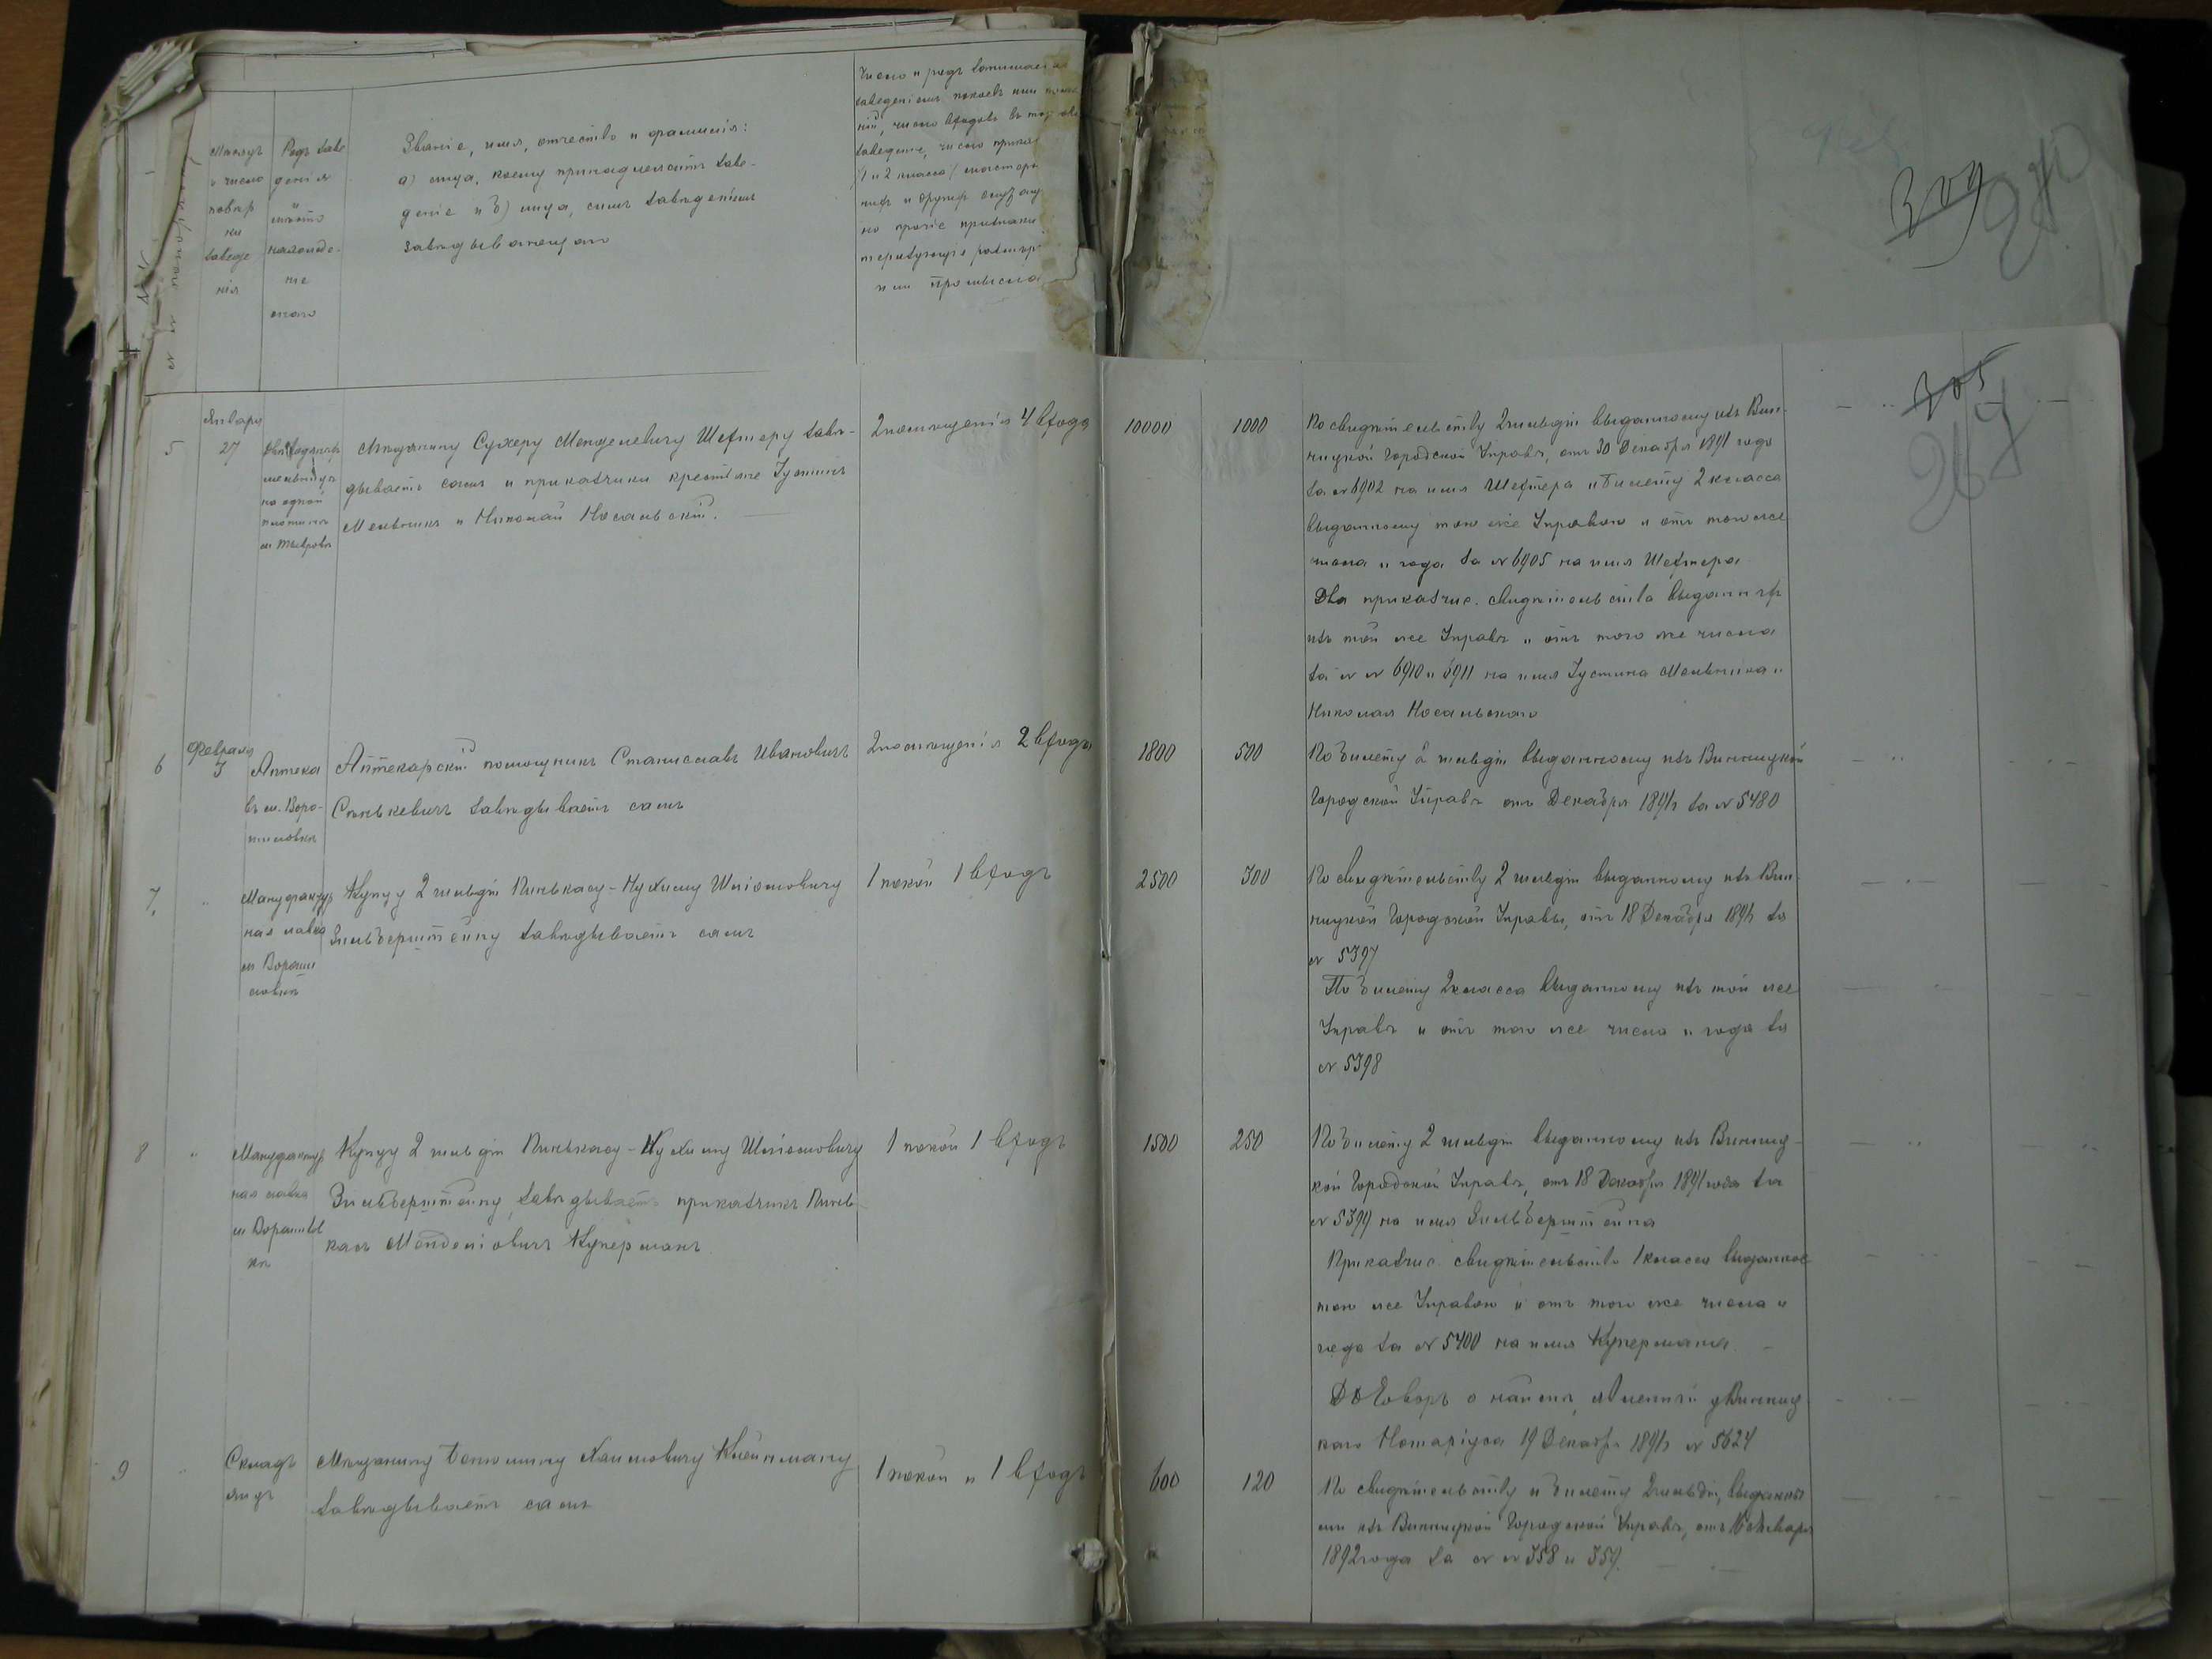 №№ по порядку
Мѣсяцъ
и число
повѣр
ки
заведе
нія
Родъ заве
денія
и
мѣсто
нахожде-
ніе
онаго
Званіе, имя, отчество и фамилія:
а) лица, коему принадлежитъ заве-
деніе и б) лица, симъ заведеніемъ
завѣдывающаго
Число и родъ занимаем
заведеніемъ покоевъ или помѣще
ній, число входовъ въ торгов
заведеніе, число приказ
/1 и 2 класса/ мастеро
выхъ и другихъ служащ
но прочіе признаки
теризующіе размѣр
или промысла
309
5
Января
27
Двѣ водяныхъ
мельницы
на одной
плотинѣ
м Тывровѣ
Мѣщанину Сухеру Менделевичу Шехтеру завѣ-
дываетъ самъ и приказчики крестьяне Іустинъ
Мельникъ и Николай Носальскій.
2 помѣщенія 4 входа
10000
1000
По свидѣтельству 2 гильдіи выданному изъ Вин-
ницкой Городской Управы, отъ 30 Декабря 1891 года
за № 6902 на имя Шехтера и билету 2 класса
выданному тою же Управою и отъ того же
числа и года за № 6905 на имя Шехтера
Два приказчич. свидѣтельства выданныхъ
изъ той же Управы и отъ того же числа
за №№ 6910 и 6911 на имя Іустина Мельника и
Николая Носальскаго
305
6
Февраля
3
Аптека
въ м. Воро-
шиловкѣ
Аптекарскій помощникъ Станиславъ Ивановичъ
Сѣнькевичъ завѣдываетъ самъ
2 помѣщенія 2 входа
1800
500
По билету 2 гильдіи выданному изъ Винницкой
Городской Управы отъ Декабря 1891 г за № 5480
7.
"
Мануфактур
ная лавка
м Вороши
ловкѣ
Купцу 2 гильдіи Пинькасу-Нухиму Шліомовичу
Зильберштейну завѣдываетъ самъ
1 покой 1 входъ
2500
300
По свидѣтельству 2 гильдіи выданному изъ Вин-
ницкой Городской Управы, отъ 18 Декабря 1891 г за
№ 5397
По билету 2 класса выданному изъ той же
Управы и отъ того же числа и года за
№ 5398
8
"
Мануфактур
ная лавка
м Ворошилов
кѣ
Купцу 2 гильдіи Пинькасу-Нухиму Шліомовичу
Зильберштейну, завѣдываетъ приказчикъ Пинь-
касъ Менделіовичъ Куперманъ
1 покой 1 входъ
1500
250
По билету 2 гильдіи выданному изъ Винниц-
кой Городской Управы, отъ 18 Декабря 1891 года за
№ 5399 на имя Зильберштейна
Приказчич. свидѣтельство 1 класса выданное
тою же Управою и отъ того же числа и
года за № 5400 на имя Купермана. –
Договоръ о наймѣ, явленный у Винниц-
каго Нотаріуса 19 Декабря 1891 г № 5624
9
"
Складъ
яицъ
Мѣщанину Беньямину Хаимовичу Клейнману
завѣдываетъ самъ
1 покой и 1 входъ
600
120
По свидѣтельству и билету 2 гильдіи, выданны
ми изъ Винницкой Городской Управы, отъ Января
1892 года за №№ 358 и 359.